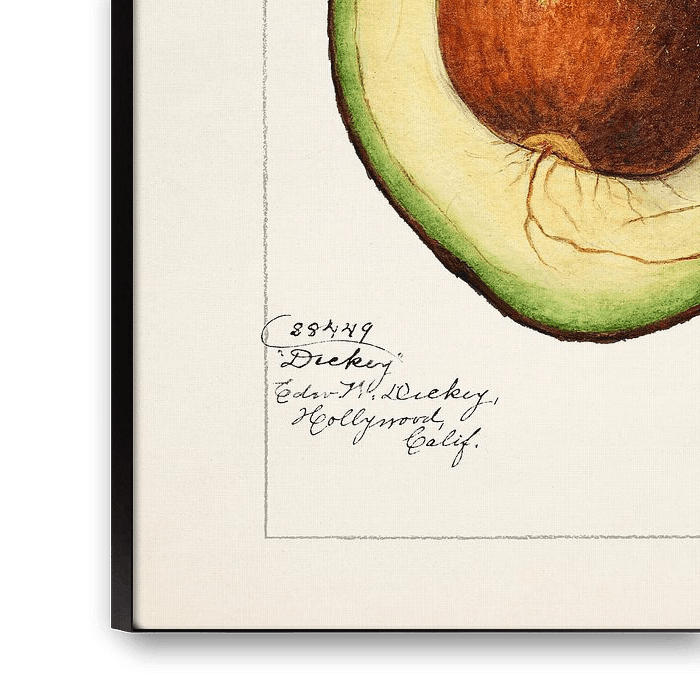 88449
"Dickey"
Edw. N. Dickey,
Hollywood,
Calif.